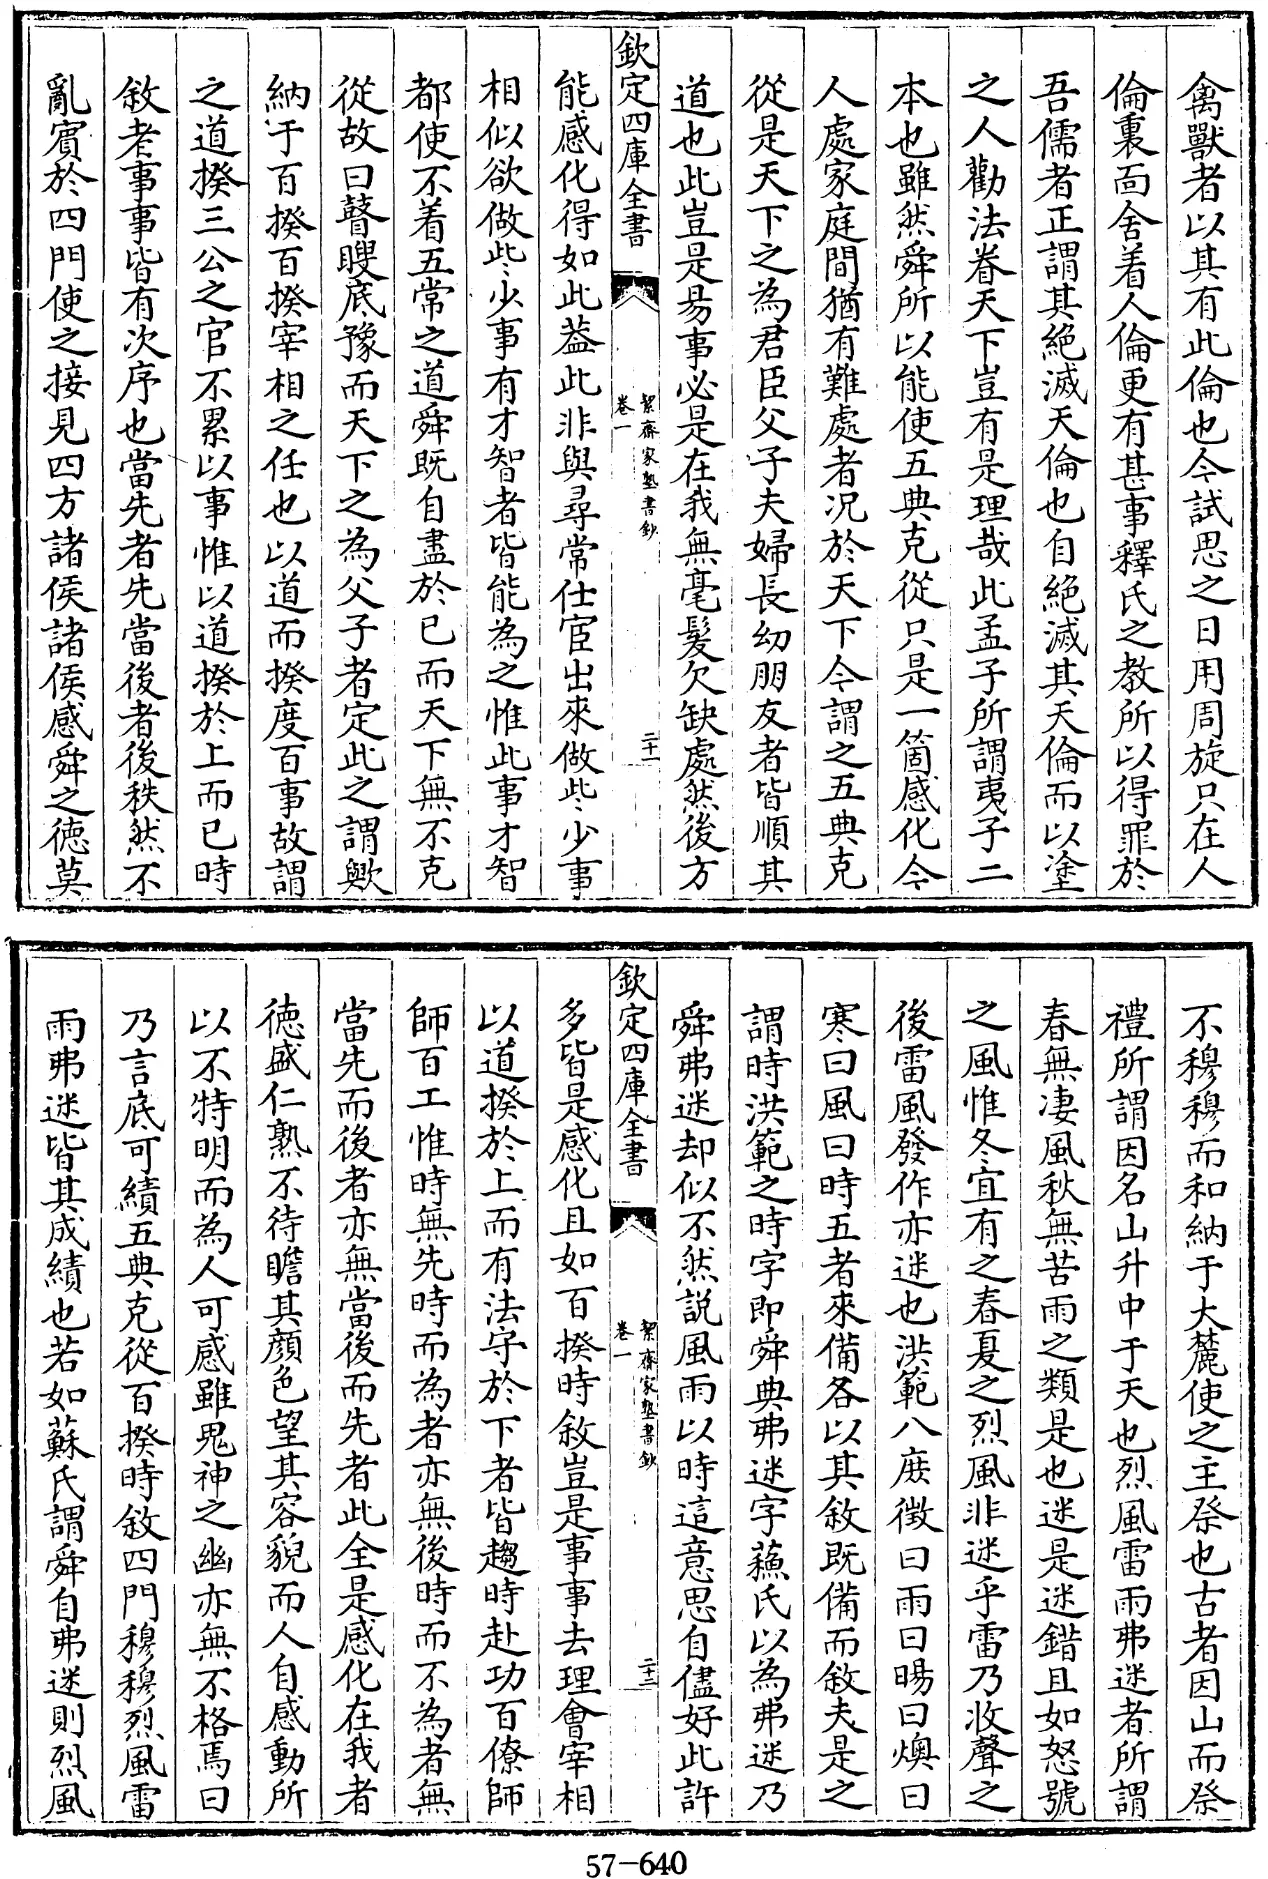 禽獸者以其有此倫也今試思之日用周旋只在人
倫裏靣舍着人倫更有甚事釋氏之教所以得罪於
吾儒者正謂其絶滅天倫也自絶滅其天倫而以塗
之人勸法眷天下豈有是理哉此孟子所謂夷子二
本也雖然舜所以能使五典克從只是一箇感化今
人處家庭間猶有難處者况於天下今謂之五典克
從是天下之為君臣父子夫婦長幼朋友者皆順其
道也此豈是易事必是在我無毫髮欠缺處然後方
欽定四庫全書
絜齋家塾書鈔
卷一
二十一
能感化得如此葢此非與尋常仕宦出來做些少事
相似欲做些少事有才智者皆能為之惟此事才智
都使不着五常之道舜既自盡於已而天下無不克
從故曰瞽瞍底豫而天下之為父子者定此之謂歟
納于百揆百揆宰相之任也以道而揆度百事故謂
之道揆三公之官不累以事惟以道揆於上而已時
敘者事事皆有次序也當先者先當後者後秩然不
亂賓於四門使之接見四方諸侯諸侯感舜之德莫
不穆穆而和納于大麓使之主祭也古者因山而祭
禮所謂因名山升中于天也烈風雷雨弗迷者所謂
春無凄風秋無苦雨之類是也迷是迷錯且如怒號
之風惟冬宜有之春夏之烈風非迷乎雷乃收聲之
後雷風發作亦迷也洪範八庶徵曰雨曰暘曰燠曰
寒曰風曰時五者來備各以其敘既備而敘夫是之
謂時洪範之時字即舜典弗迷字蘓氏以為弗迷乃
舜弗迷却似不然説風雨以時這意思自儘好此許
欽定四庫全書
絜齋家塾書鈔
卷一
二十二
多皆是感化且如百揆時敘豈是事事去理會宰相
以道揆於上而有法守於下者皆趨時赴功百僚師
師百工惟時無先時而為者亦無後時而不為者無
當先而後者亦無當後而先者此全是感化在我者
德盛仁熟不待瞻其顔色望其容貌而人自感動所
以不特明而為人可感雖鬼神之幽亦無不格焉曰
乃言底可績五典克從百揆時敘四門穆穆烈風雷
雨弗迷皆其成績也若如蘇氏謂舜自弗迷則烈風
57-640